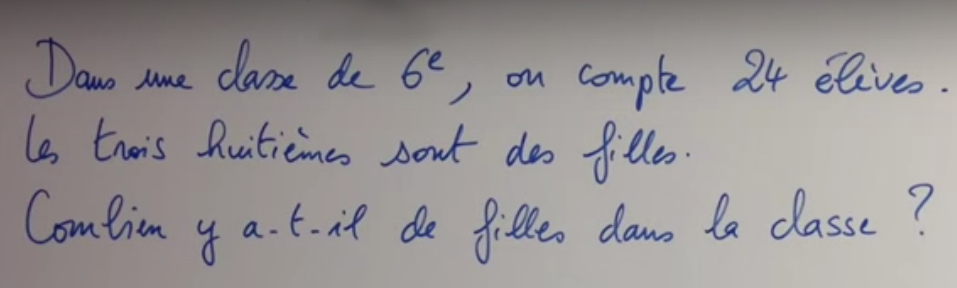 Dans une classe de 6e, on compte 24 élèves.
Les trois huitièmes sont des filles.
Combien y a-t-il de filles dans la classe ?